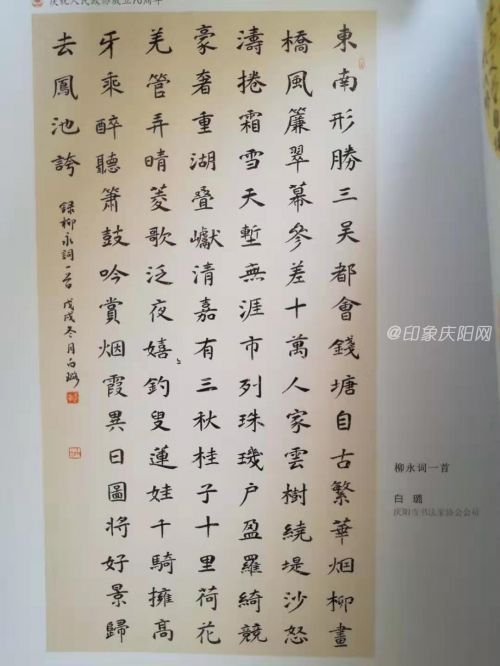 庆祝人民政协成立70周年
東南形勝三吴都會錢塘自古繁華烟柳畫
橋風簾翠幕參差十萬人家雲樹繞堤沙怒
濤捲霜雪天塹無涯市列珠璣户盈羅綺競
豪奢重湖疊巘清嘉有三秋桂子十里荷花
羌管弄晴菱歌泛夜嬉〻釣叟蓮娃千騎擁高
牙乘醉聽簫鼓吟賞烟霞異日圖將好景歸
去鳳池誇
録柳永詞一首 戊戌冬月白璐
@印象庆阳网
柳永词一首
白 璐
庆阳市书法家协会会员